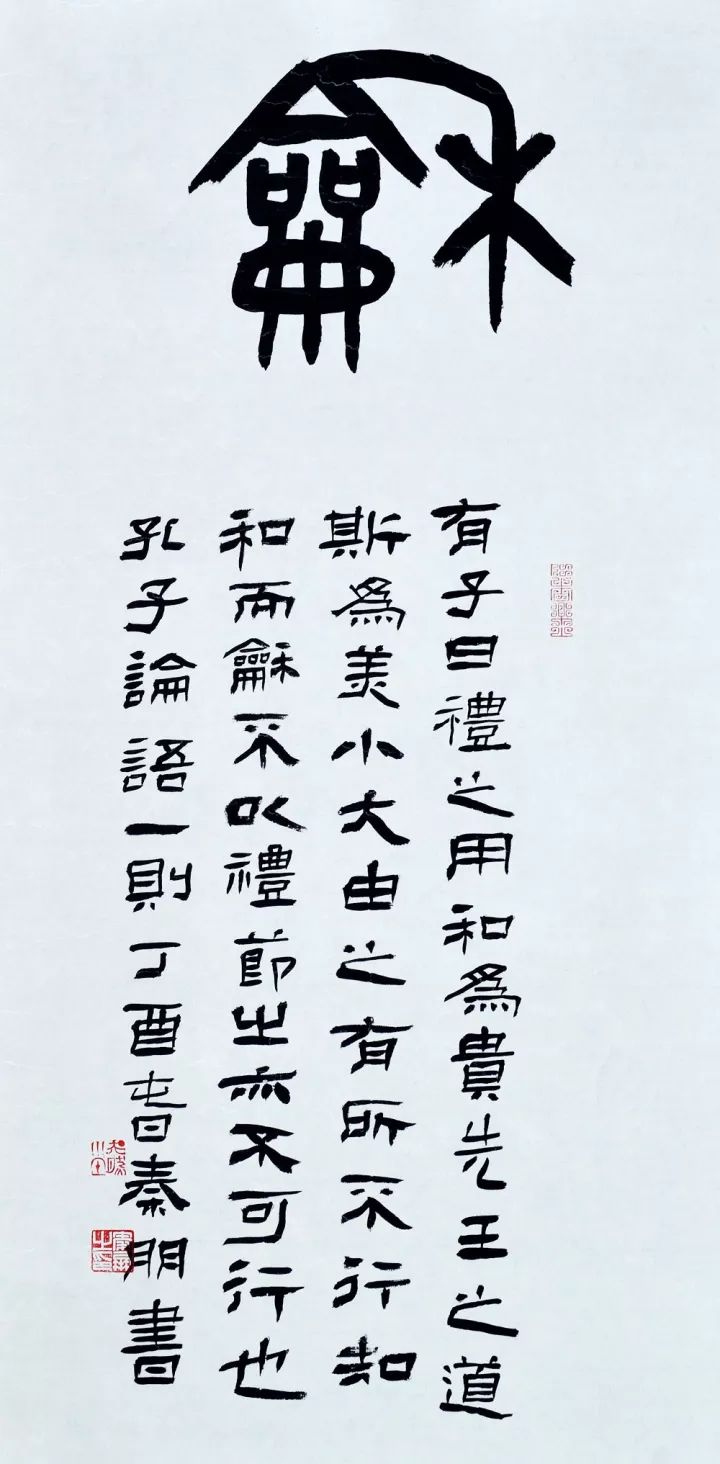 龢
有子曰禮之用和為貴先王之道
斯為美小大由之有所不行知
和而龢不以禮節之亦不可行也
孔子論語一則丁酉春秦朋書